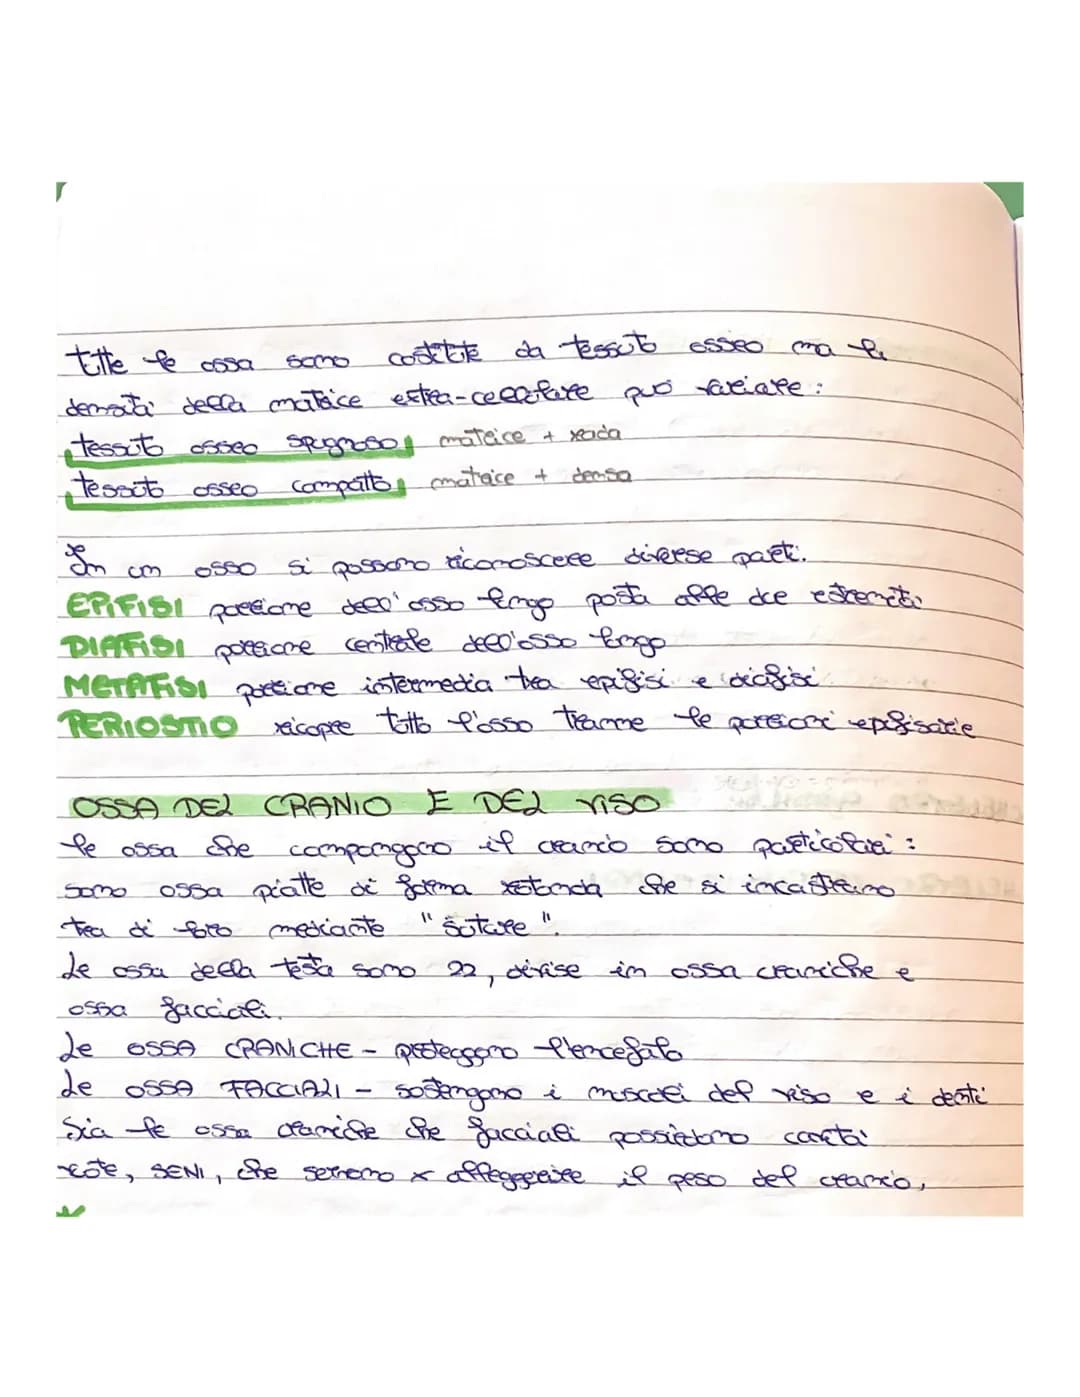 tutte le ossa sono costituite da tessuto osseo ma la
densità della matrice extra-cellulare può variare:
tessuto osseo spugnoso matrice + rada
tessuto osseo compatto matrice + densa
In un osso si possono riconoscere diverse parti.
EPIFISI porzione dell'osso lungo posta alle due estremità
DIAFISI porzione centrale dell'osso lungo
METAFISI porzione intermedia tra epifisi e diafisi
PERIOSTIO ricopre tutto l'osso tranne le porzioni epifisarie
OSSA DEL CRANIO E DEL VISO
le ossa che compongono il cranio sono particolari:
sono ossa piatte di forma rotonda che si incastrano
tra di loro mediante "suture".
Le ossa della testa sono 22, divise in ossa craniche e
ossa facciali.
Le OSSA CRANICHE - proteggono l'encefalo
Le OSSA FACCIALI - sostengono i muscoli del viso e i denti
Sia le ossa craniche che facciali possiedono cavità
vuote, SENI, che servono x alleggerire il peso del cranio,